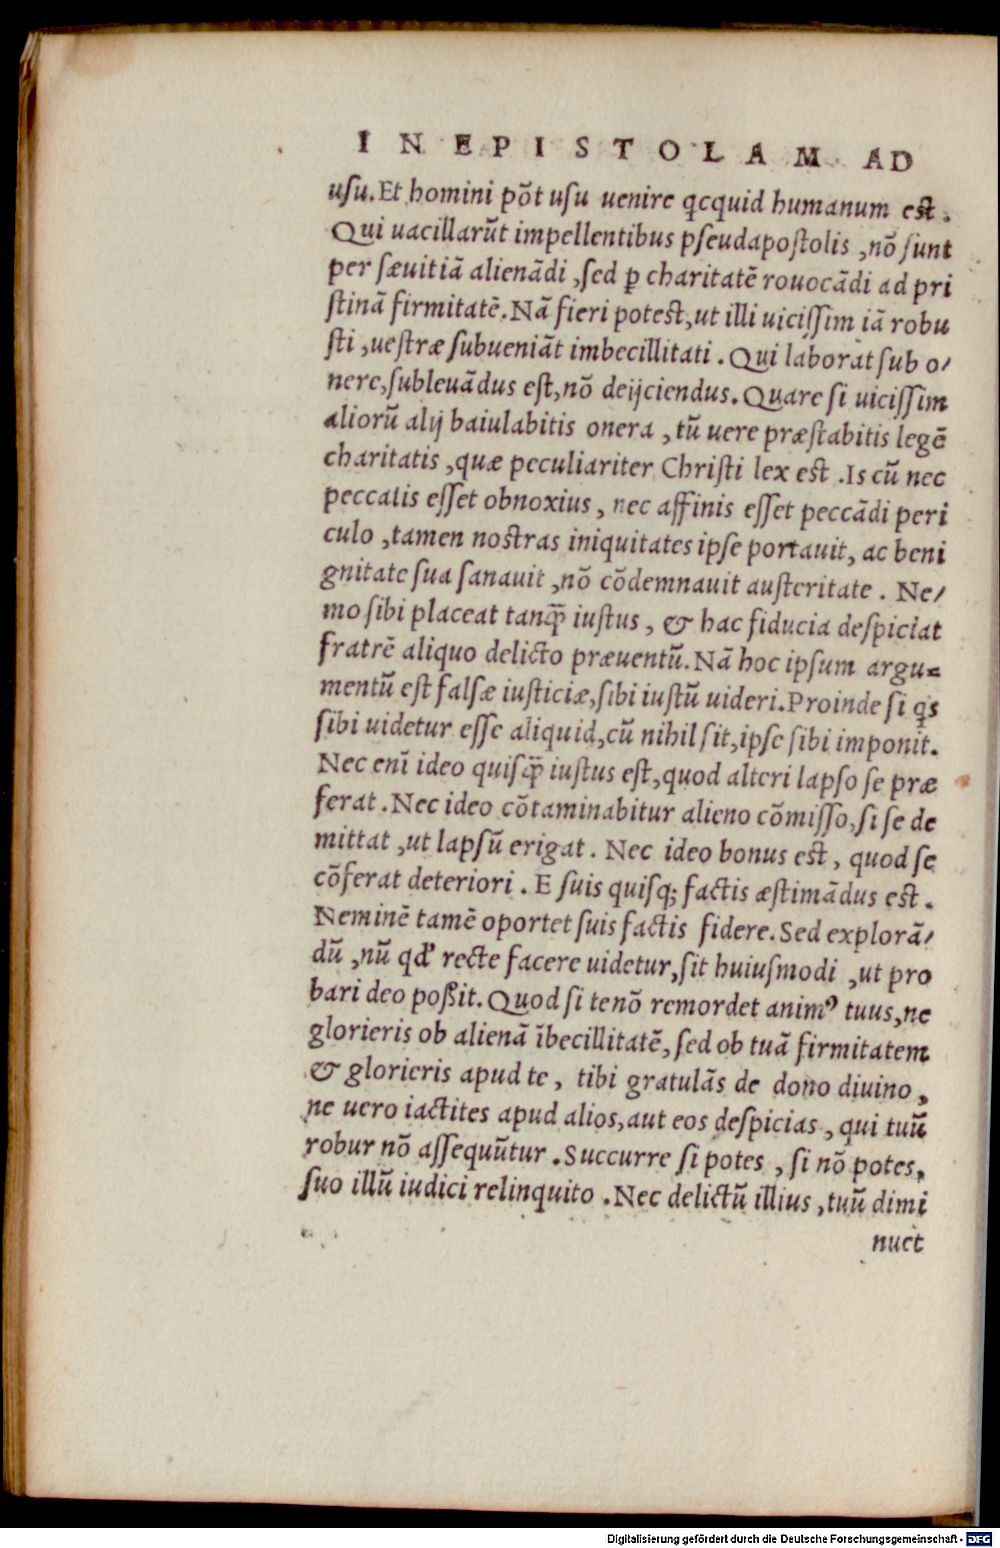 IN EPISTOLAM AD
uſu. Et homini põt uſu uenire qcquid humanum eſt.
Qui uacillarũt impellentibus pſeudapoſtolis, nõ ſunt
per ſæuitiã alienãdi, ſed ꝑ charitatẽ rouocãdi ad pri
ſtinã firmitatẽ. Nã fieri poteſt, ut illi uiciſſim iã robu
ſti, ueſtræ ſubueniãt imbecillitati. Qui laborat ſub o/
nere, ſubleuãdus eſt, nõ deijciendus. Quare ſi uiciſſim
aliorũ alij baiulabitis onera, tũ uere præſtabitis legẽ
charitatis, quæ peculiariter Chriſti lex eſt. Is cũ nec
peccatis eſſet obnoxius, nec affinis eſſet peccãdi peri
culo, tamen noſtras iniquitates ipſe portauit, ac beni
gnitate ſua ſanauit, nõ cõdemnauit auſteritate. Ne/
mo ſibi placeat tanq̃ iuſtus, & hac fiducia deſpiciat
fratrẽ aliquo delicto præuentũ. Nã hoc ipſum argu=
mentũ eſt falſæ iuſticiæ, ſibi iuſtũ uideri. Proinde ſi qs
ſibi uidetur eſſe aliquid, cũ nihil ſit, ipſe ſibi imponit.
Nec enĩ ideo quiſq̃ iuſtus eſt, quod alteri lapſo ſe præ
ferat. Nec ideo cõtaminabitur alieno cõmiſſo, ſi ſe de
mittat, ut lapſũ erigat. Nec ideo bonus eſt, quod ſe
cõferat deteriori. E ſuis quiſq; factis æſtimãdus eſt.
Neminẽ tamẽ oportet ſuis factis fidere. Sed explorã/
dũ, nũ qd' recte facere uidetur, ſit huiuſmodi, ut pro
bari deo poßit. Quod ſi te nõ remordet animꝰ tuus, ne
glorieris ob alienã ĩbecillitatẽ, ſed ob tuã firmitatem
& glorieris apud te, tibi gratulãs de dono diuino,
ne uero iactites apud alios, aut eos deſpicias, qui tuũ
robur nõ aſſequũtur. Succurre ſi potes, ſi nõ potes,
ſuo illũ iudici relinquito. Nec delictũ illius, tuũ dimi
nuet
Digitalisierung gefördert durch die Deutsche Forschungsgemeinschaft - DFG